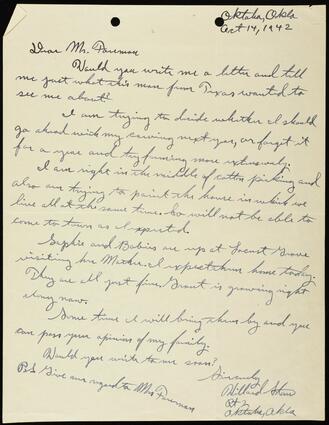 Oktaha, Okla
Oct 14, 1942
Dear Mr.
Would you write me a letter and tell
me just what this man from Texas wanted to
see me about?
I am trying to decide whether I should
go ahead with my carving next year, or forget it
for a year and try farming more extensively.
I am right in the middle of cotton picking and
also am trying to paint the house in which we
live all at the same time. So will not be able to
come to town as I expected.
Sophie and Babies are up at Locust Grove
visiting her Mother. I expect them home today.
They are all just fine. Grant is growing right
along now.
Some time I will bring them by and you
can pass your opinion of my family.
Would you write to me soon?
Sincerely
P.S. Give our regard to Mrs
Willard Stone
Oktaha, Okla